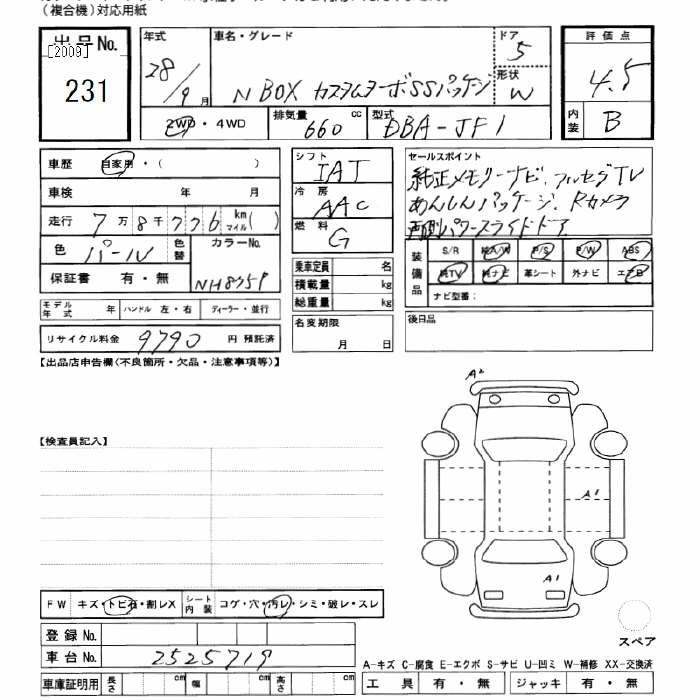 （複合機）対応用紙
出品No.
[2009]
231
年式
28/9 月
車名・グレード
N BOX カスタムターボSSパッケージ
ドア
5
形状
W
評価点
4.5
内装
B
2WD・4WD
排気量
660 cc
型式
DBA-JF1
車歴 自家用・（ ）
車検 年 月
走行 7万8千776 km マイル( )
色 パール
色替
カラーNo.
NH875P
保証書 有・無
シフト
IAT
冷房
AAC
燃料
G
乗車定員 名
積載量 kg
総重量 kg
セールスポイント
純正メモリーナビ、フルセグTV
あんしんパッケージ、Rカメラ
両側パワースライドドア
装備品
S/R 純A/W P/S P/W ABS
純TV 純ナビ 革シート 外ナビ エアB
ナビ型番：
モデル年式 年 ハンドル 左・右 ディーラー・並行
リサイクル料金 9790 円 預託済
名変期限
月 日
後日品
【出品店申告欄(不良箇所・欠品・注意事項等)】
【検査員記入】
A2
A1
A1
FW キズ・トビ石・割レX
シート内装 コゲ・穴・汚レ・シミ・破レ・スレ
スペア
登録No.
車台No. 2525719
A-キズ C-腐食 E-エクボ S-サビ U-凹ミ W-補修 XX-交換済
車庫証明用 長さ cm 幅 cm 高さ cm
工具 有・無 ジャッキ 有・無